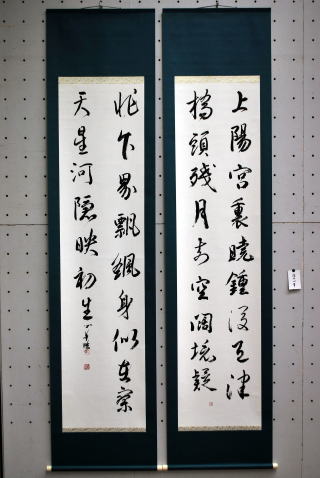 上陽宮裏曉鐘後天津
橋頭殘月前空闊境疑
非下界飄颻身似在寥
天星河隱映初生